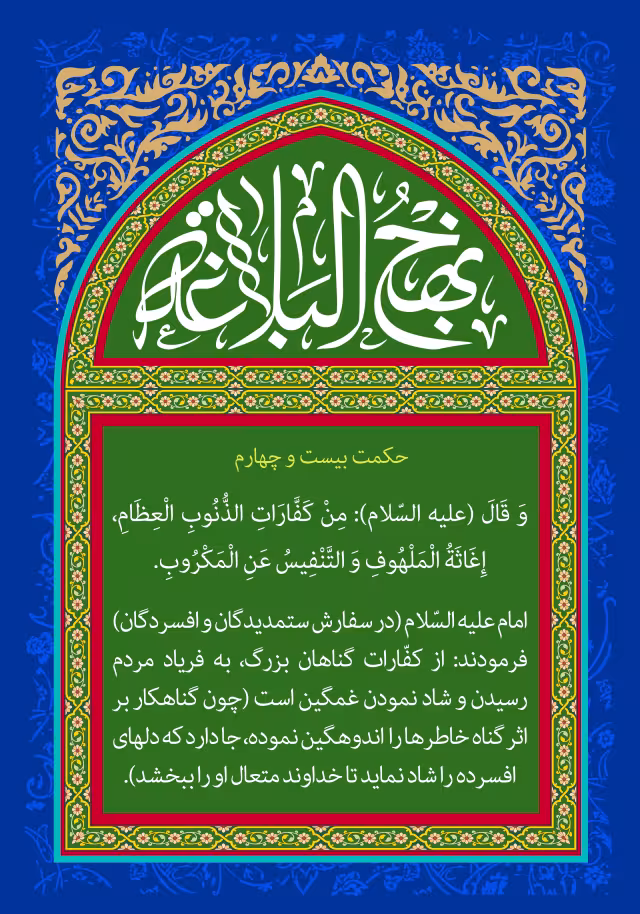 نهج البلاغة
حکمت بیست و چهارم
وَ قَالَ (علیه السّلام): مِنْ كَفَّارَاتِ الذُّنُوبِ الْعِظَامِ،
إِغَاثَةُ الْمَلْهُوفِ وَ التَّنْفِيسُ عَنِ الْمَكْرُوبِ.
امام علیه السّلام (در سفارش ستمدیدگان و افسردگان)
فرمودند: از کفّارات گناهان بزرگ، به فریاد مردم
رسیدن و شاد نمودن غمگین است (چون گناهکار بر
اثر گناه خاطرها را اندوهگین نموده، جا دارد که دلهای
افسرده را شاد نماید تا خداوند متعال او را ببخشد).